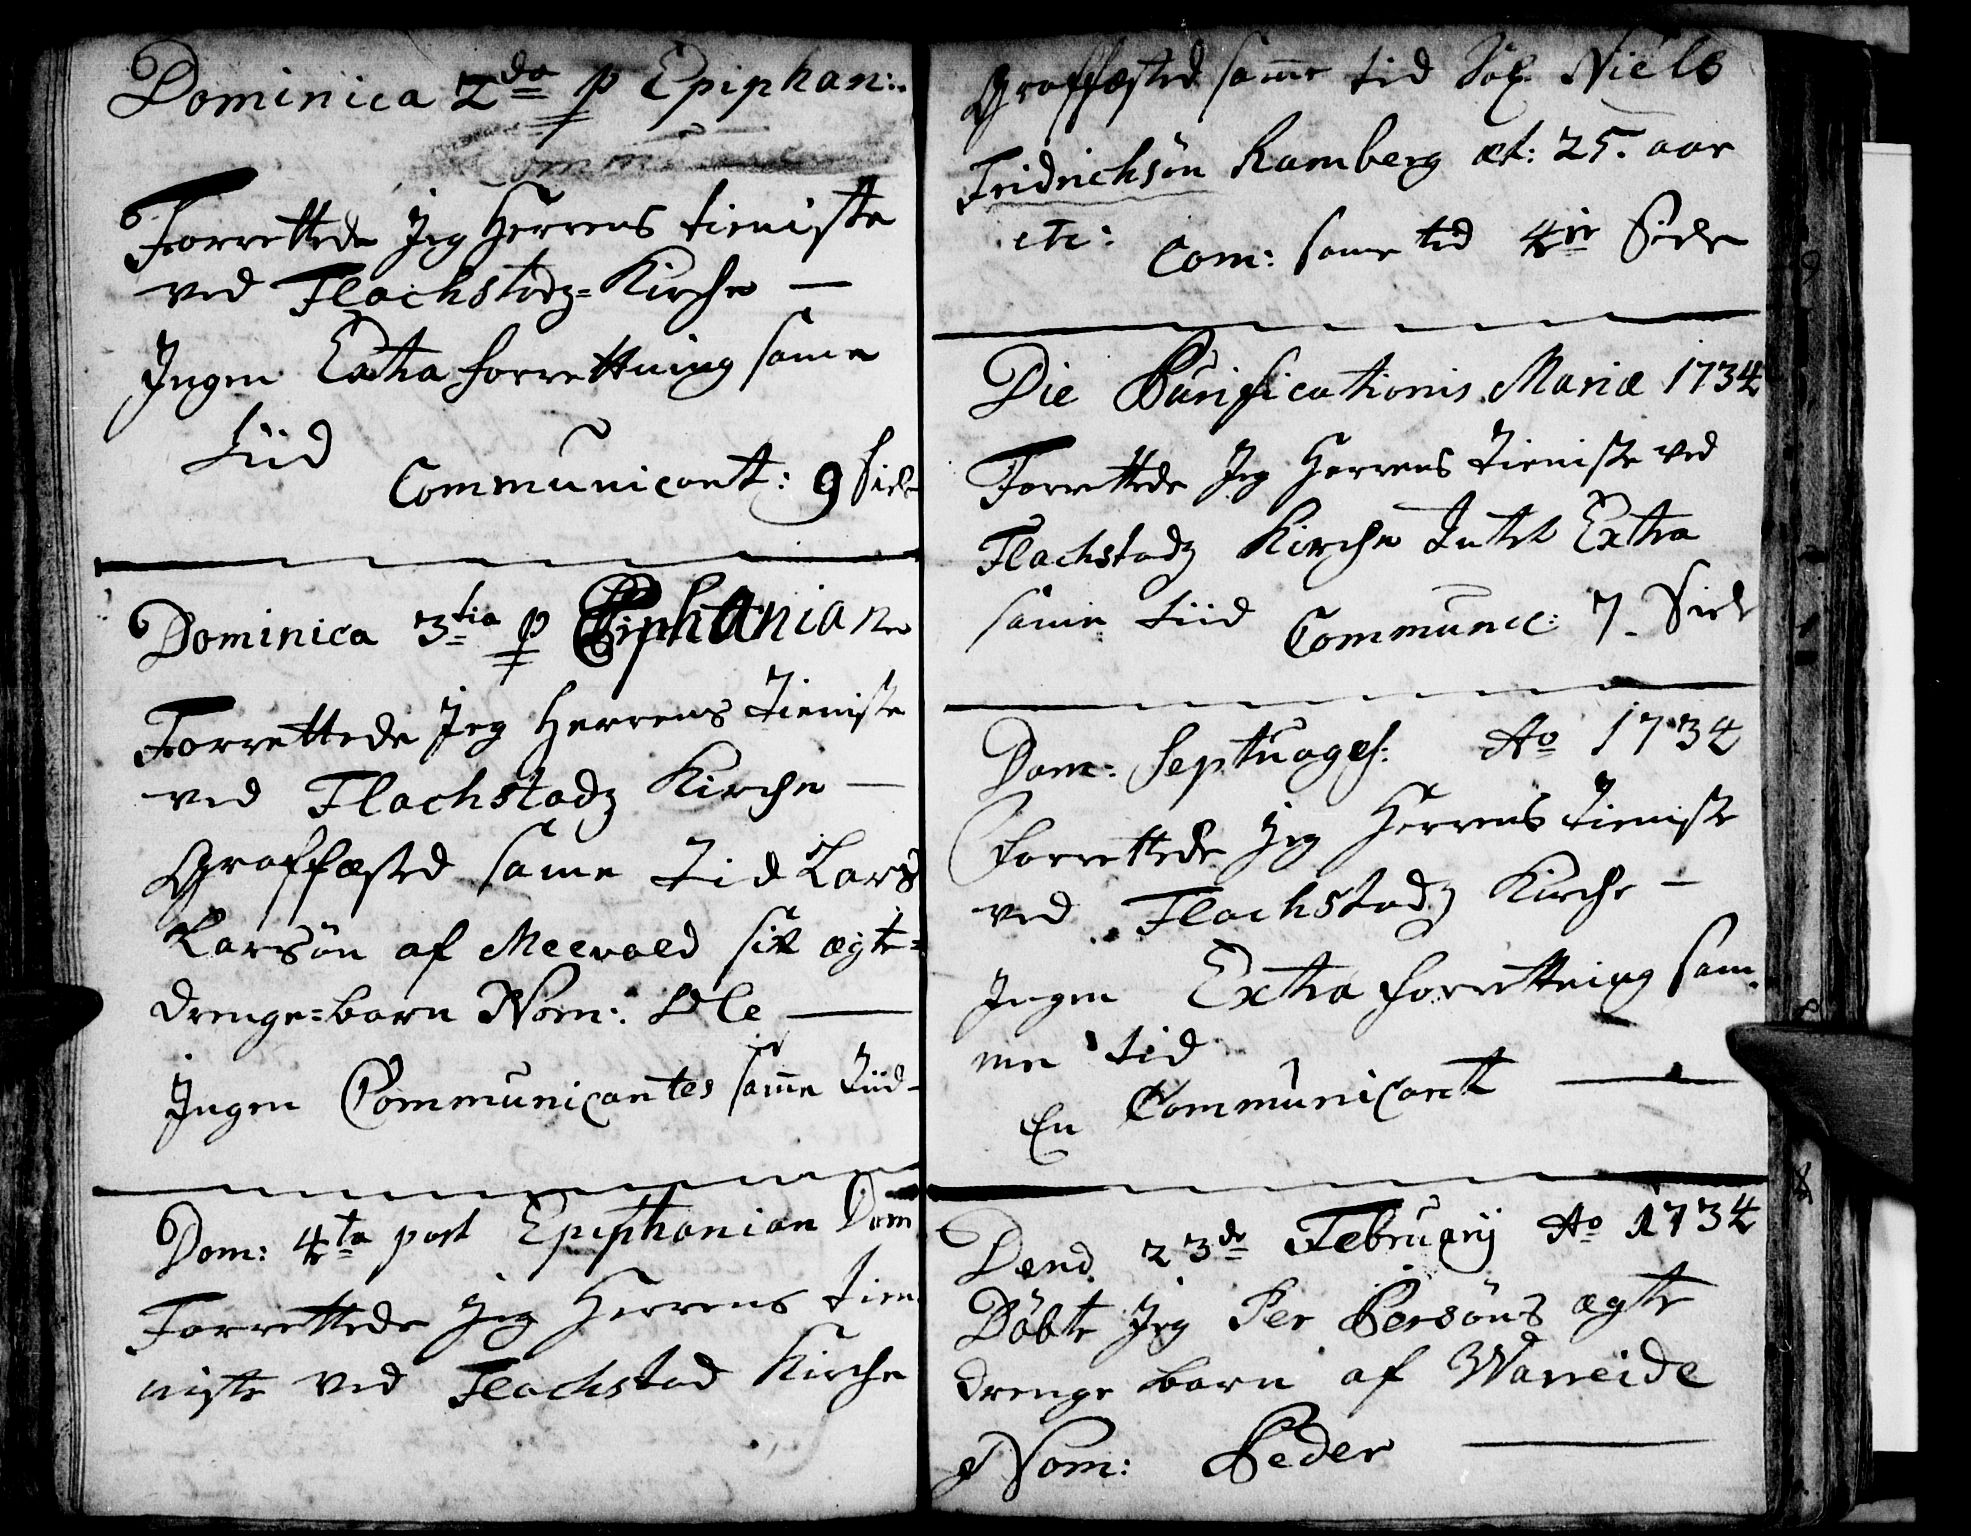 Dominica 2da p Epiphan:
Forrettede Jeg Herrens tieniste
ved Flachstadz=Kirche —
Ingen Extra forrettning same
tiid
Communicant: 9 Siele
Dominica 3tia p Epiphanian
Forrettede Jeg Herrens Tieniste
ved Flachstadz Kirche —
Graffæsted same Tid Lars
Larsøn af Meevold sit ægte=
drenge=barn Nom: Ole —
Ingen Communicantes same tiid
Dom: 4ta post Epiphanian Dom
Forrettede Jeg Herrens tien
niste ved Flachstad Kirche
Graffæsted same tid Niels
Fridrichsøn Ramberg æt: 25. aar
etc: Com: same tid 4re Siele
Die Purificationis Mariæ 1734
Forrettede Jeg Herrens Tieniste ved
Flachstadz Kirche Intet Extra
same tiid Communic: 7. Siele
Dom: Septuages: Ao 1734
Forrettede Jeg Herrens Tieniste
ved Flachstadz Kirche —
Ingen Extra forrettning sam
me tid
En Communicant —
Dend 23de February Ao 1734
Döbte Jeg Per Persöns ægte
drenge barn af Wareide
Nom: Peder —